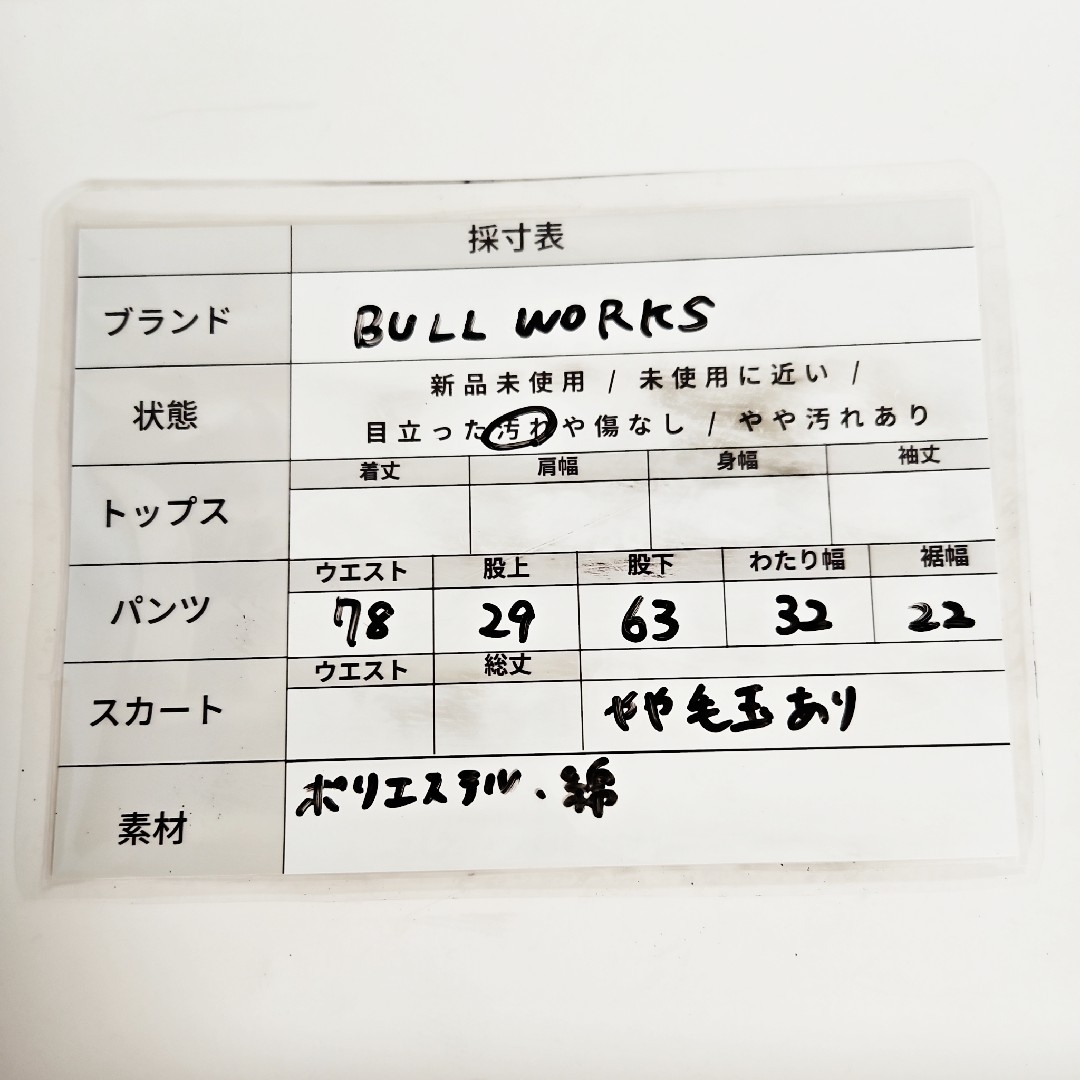 採寸表
ブランド BULL WORKS
新品未使用 / 未使用に近い /
状態
目立った汚れや傷なし / やや汚れあり
着丈 肩幅 身幅 袖丈
トップス
ウエスト 股上 股下 わたり幅 裾幅
パンツ 78 29 63 32 22
ウエスト 総丈
スカート やや毛玉あり
ポリエステル・綿
素材